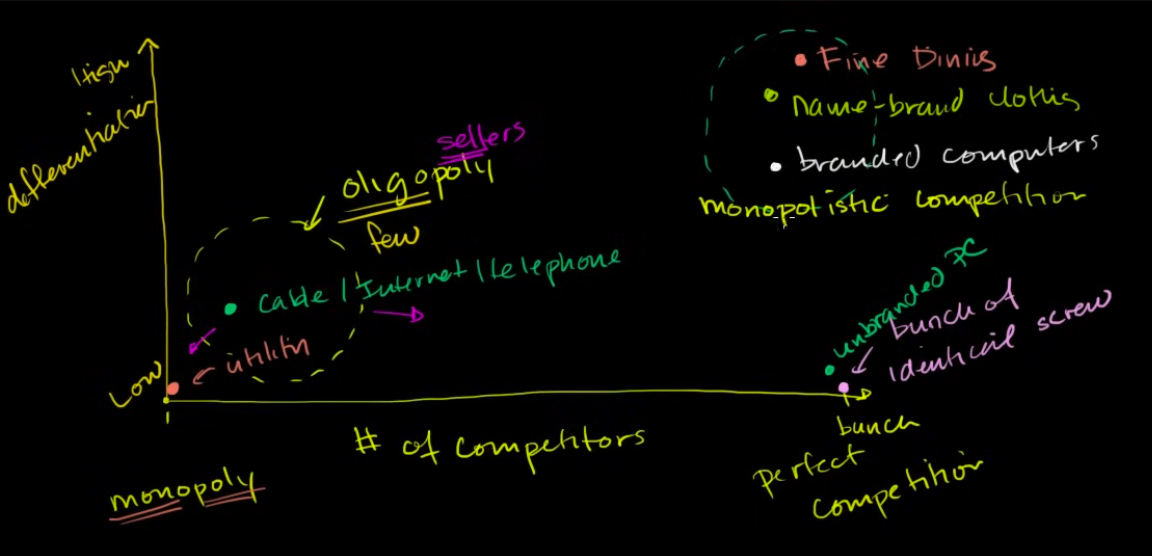 High
differentiation
Low
1
monopoly
# of competitors
sellers
oligopoly
few
cable / Internet / telephone
utilitin
Fine Dining
name-brand clothing
branded computers
monopolistic competition
unbranded PC
bunch of
identical screw
bunch
perfect
competition